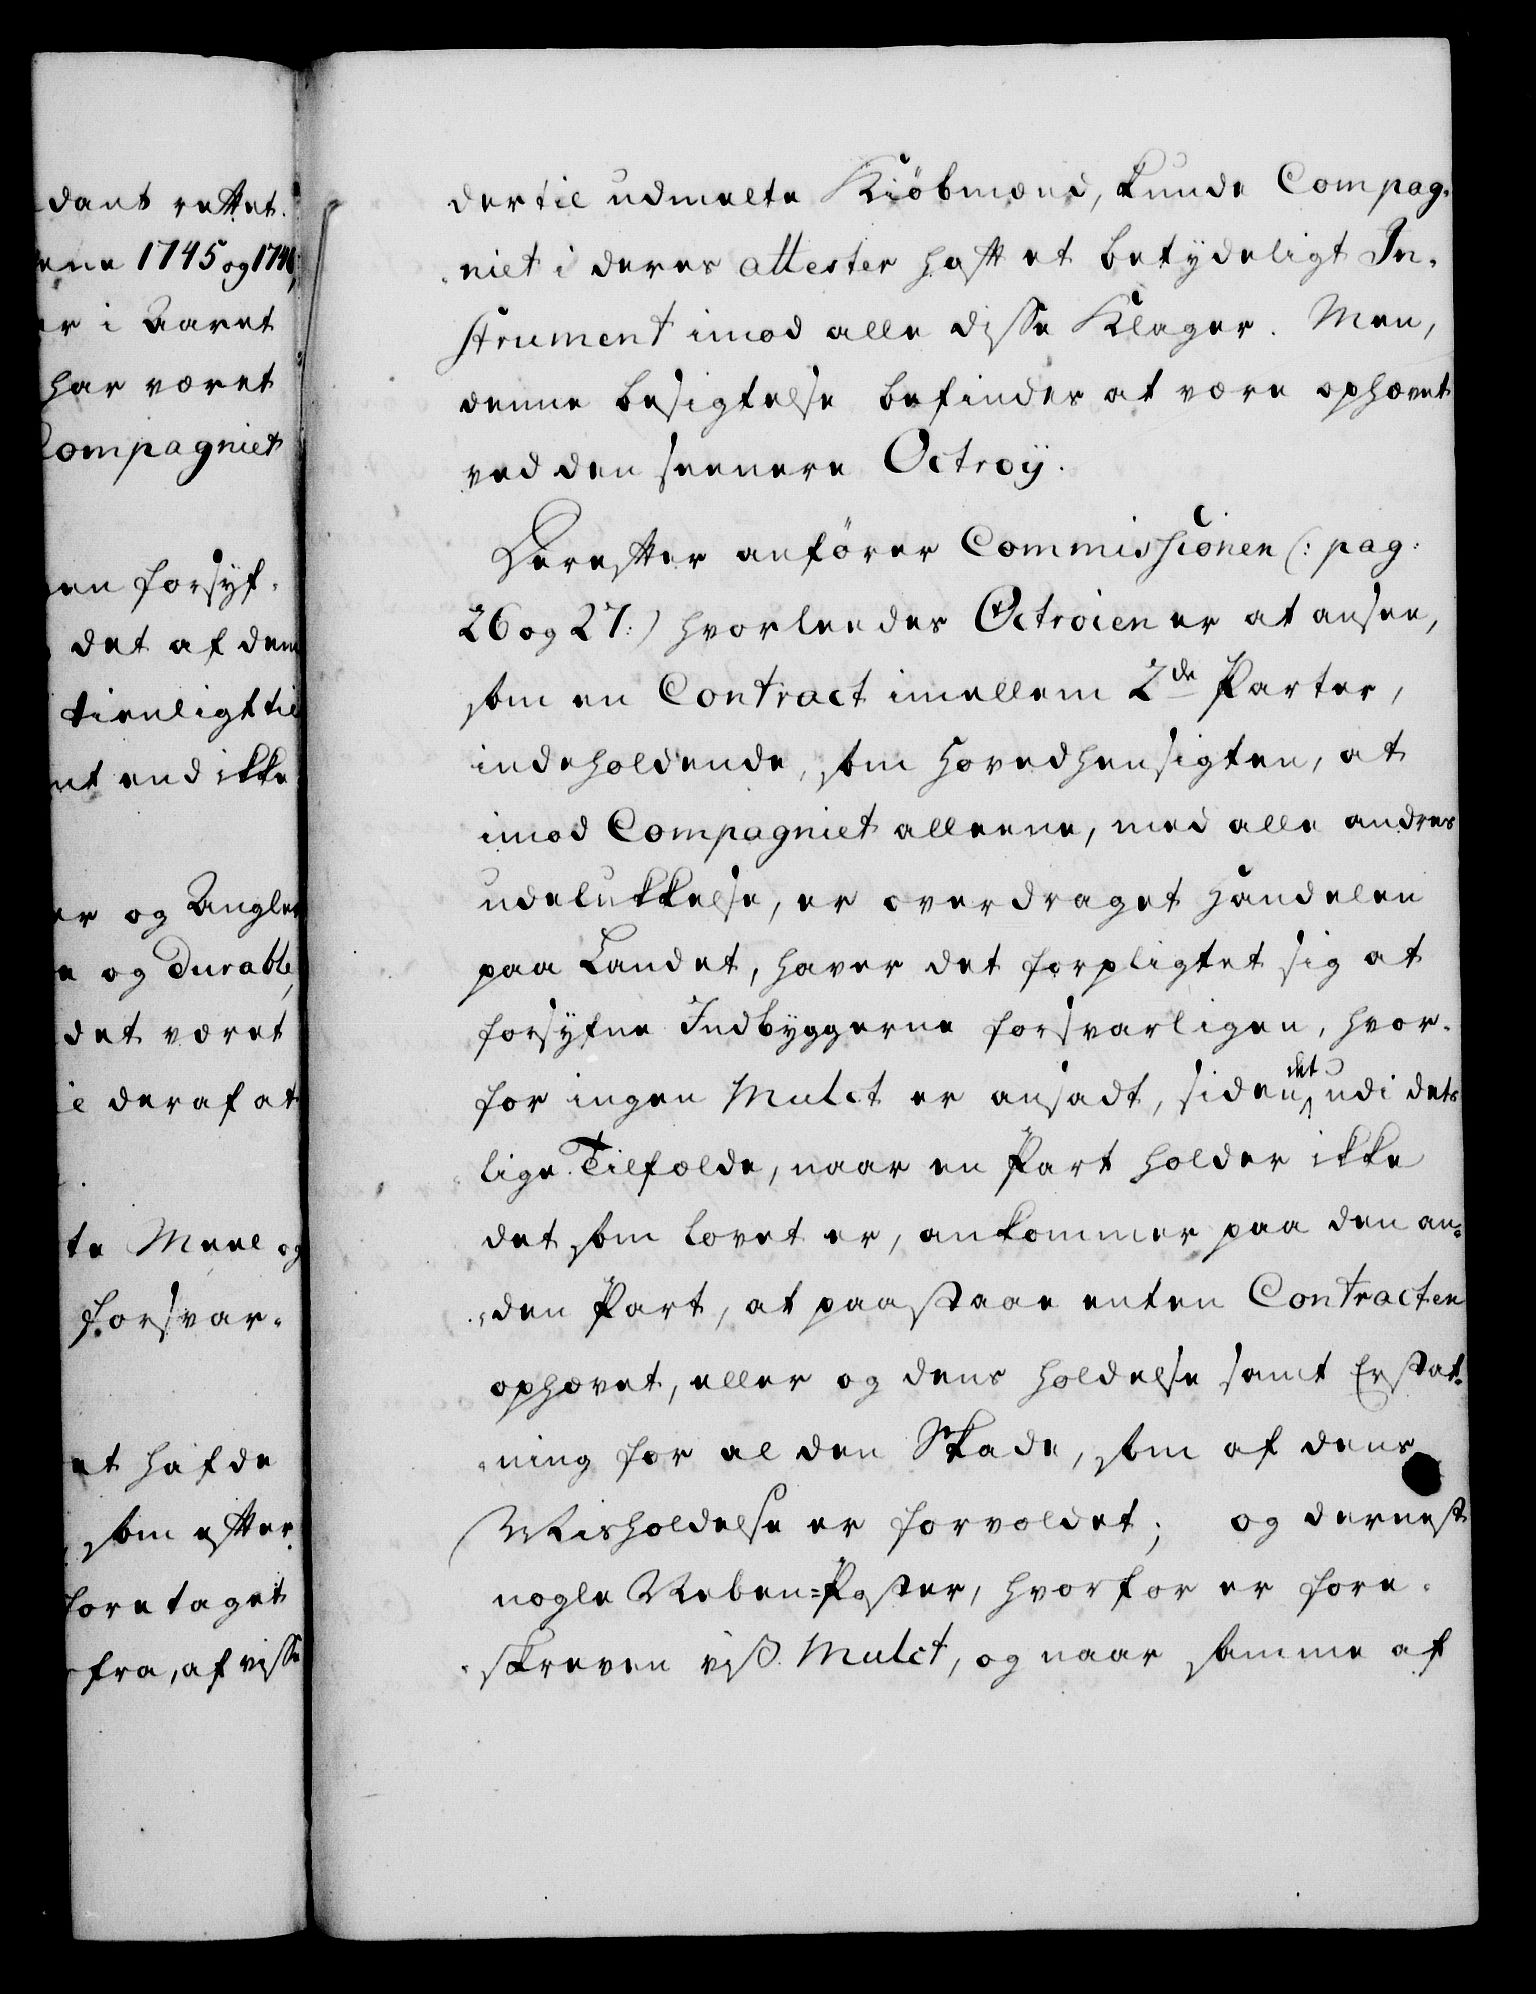 dant rettet.
ene 1745 og 1746,
er i Aaret
har været
Compagniet
en forsyf-
det af dem
tienligt til
nt end ikke
er og Angler
e og durable,
det været
il deraf at
te Meel og
forsvar-
et hafde
som efter
foretaget
fra, af visse
dertil udmelte Kiöbmænd, kunde Compag-
niet i deres attester haft et betydeligt In-
strument imod alle disse Klager. Men,
denne besigtelse befindes at være ophævet
ved den seenere Octroÿ.
Derefter anförer Commissionen (: pag:
26 og 27:) hvorleedes Octroien er at ansee,
som en Contract imellem 2de Parter,
indeholdende, som Hovedhensigten, at
imod Compagniet alleene, med alle andres
udelukkelse, er overdraget Handelen
paa Landet, haver det forpligtet sig at
forsyfne Indbyggerne forsvarligen, hvor-
for ingen Mulct er ansadt, siden det udi des
lige Tilfælde, naar en Part holder ikke
det som lovet er, ankommer paa den an-
den Part, at paastaae enten Contracten
ophævet, eller og dens holdelse samt Erstat-
ning for al den Skade, som af dens
Misholdelse er forvoldet; og dernest
nogle Neben-Poster, hvorfor er fore-
skreven viß Mulct, og naar samme af